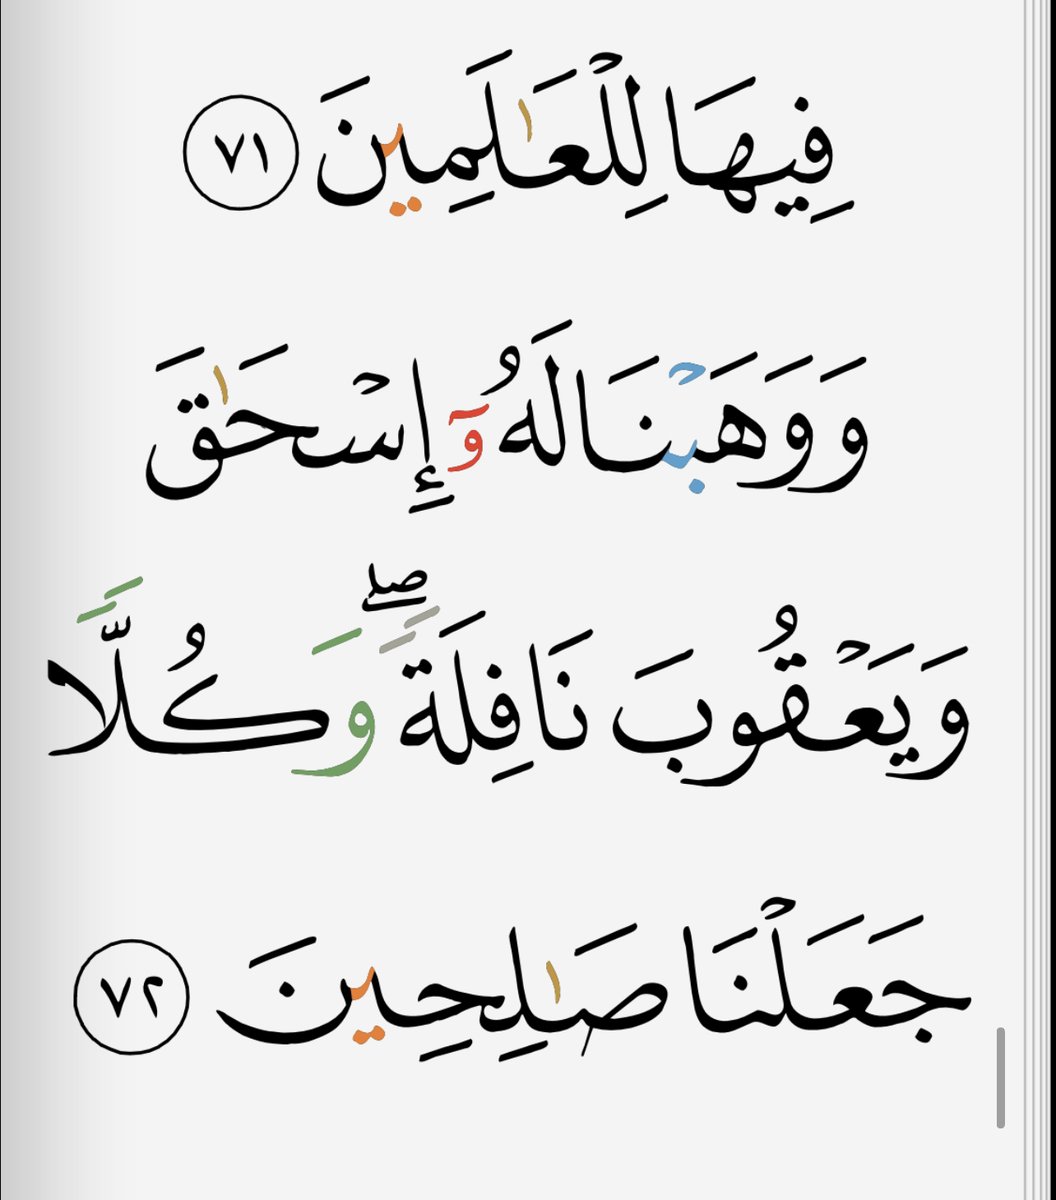 فِيهَا لِلْعَـٰلَمِينَ ٧١
وَوَهَبْنَا لَهُۥٓ إِسْحَـٰقَ
وَيَعْقُوبَ نَافِلَةً ۖ وَكُلًّا
جَعَلْنَا صَـٰلِحِينَ ٧٢